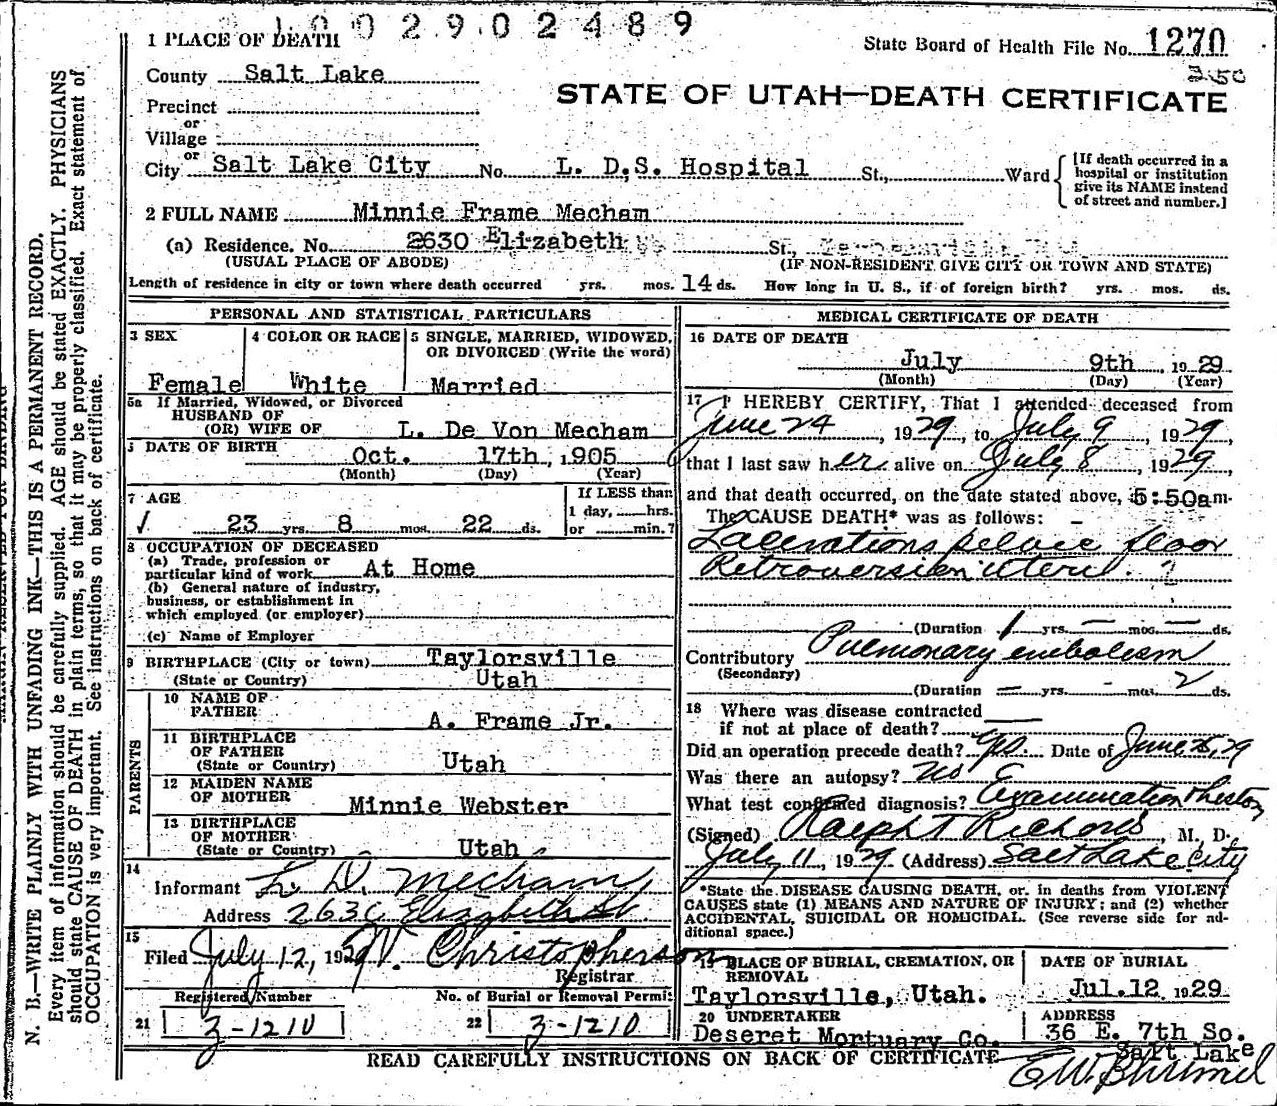 1002902489
1 PLACE OF DEATH
State Board of Health File No. 1270
County Salt Lake
3.50
STATE OF UTAH—DEATH CERTIFICATE
Precinct
or
Village
or
City Salt Lake City No. L. D.S. Hospital St., Ward
[If death occurred in a
hospital or institution
give its NAME instead
of street and number.]
2 FULL NAME Minnie Frame Mecham
(a) Residence. No. 2630 Elizabeth St.,
(USUAL PLACE OF ABODE) (IF NON-RESIDENT GIVE CITY OR TOWN AND STATE)
Length of residence in city or town where death occurred yrs. mos. 14 ds. How long in U. S., if of foreign birth? yrs. mos. ds.
PERSONAL AND STATISTICAL PARTICULARS
3 SEX 4 COLOR OR RACE 5 SINGLE, MARRIED, WIDOWED,
OR DIVORCED (Write the word)
Female White Married
5a If Married, Widowed, or Divorced
HUSBAND OF
(OR) WIFE OF L. De Von Mecham
DATE OF BIRTH
Oct. 17th, 1905
(Month) (Day) (Year)
7 AGE If LESS than
1 day, hrs.
23 yrs. 8 mos. 22 ds. or min.?
8 OCCUPATION OF DECEASED
(a) Trade, profession or
particular kind of work At Home
(b) General nature of industry,
business, or establishment in
which employed (or employer)
(c) Name of Employer
9 BIRTHPLACE (City or town) Taylorsville
(State or Country) Utah
PARENTS
10 NAME OF
FATHER A. Frame Jr.
11 BIRTHPLACE
OF FATHER
(State or Country) Utah
12 MAIDEN NAME
OF MOTHER Minnie Webster
13 BIRTHPLACE
OF MOTHER
(State or Country) Utah
14
Informant L. D. Mecham
Address 2630 Elizabeth St.
15
Filed July 12, 1929 W. Christopherson
Registrar
Registered Number No. of Burial or Removal Permit
21 3-1210 22 3-1210
MEDICAL CERTIFICATE OF DEATH
16 DATE OF DEATH
July 9th 1929
(Month) (Day) (Year)
17 I HEREBY CERTIFY, That I attended deceased from
June 24, 1929, to July 9, 1929,
that I last saw her alive on July 8, 1929,
and that death occurred, on the date stated above, 5:50am.
The CAUSE DEATH* was as follows:
Lacerations pelvic floor
Retroversion uteri.
(Duration 1 yrs. — mos. — ds.
Contributory Pulmonary embolism
(Secondary)
(Duration — yrs. - mos. 2 ds.
18 Where was disease contracted
if not at place of death?
Did an operation precede death? Yes. Date of June 25, 29
Was there an autopsy? No
What test confirmed diagnosis? Examination & history
(Signed) Ralph T Richards, M. D.
July 11, 1929 (Address) Salt Lake City
*State the DISEASE CAUSING DEATH, or, in deaths from VIOLENT
CAUSES state (1) MEANS AND NATURE OF INJURY; and (2) whether
ACCIDENTAL, SUICIDAL OR HOMICIDAL. (See reverse side for ad-
ditional space.)
19 PLACE OF BURIAL, CREMATION, OR
REMOVAL
Taylorsville, Utah.
DATE OF BURIAL
Jul.12 1929
20 UNDERTAKER
Deseret Mortuary Co.
ADDRESS
36 E. 7th So.
Salt Lake
READ CAREFULLY INSTRUCTIONS ON BACK OF CERTIFICATE
N. B.—WRITE PLAINLY WITH UNFADING INK—THIS IS A PERMANENT RECORD.
Every item of information should be carefully supplied. AGE should be stated EXACTLY. PHYSICIANS
should state CAUSE OF DEATH in plain terms, so that it may be properly classified. Exact statement of
OCCUPATION is very important. See instructions on back of certificate.